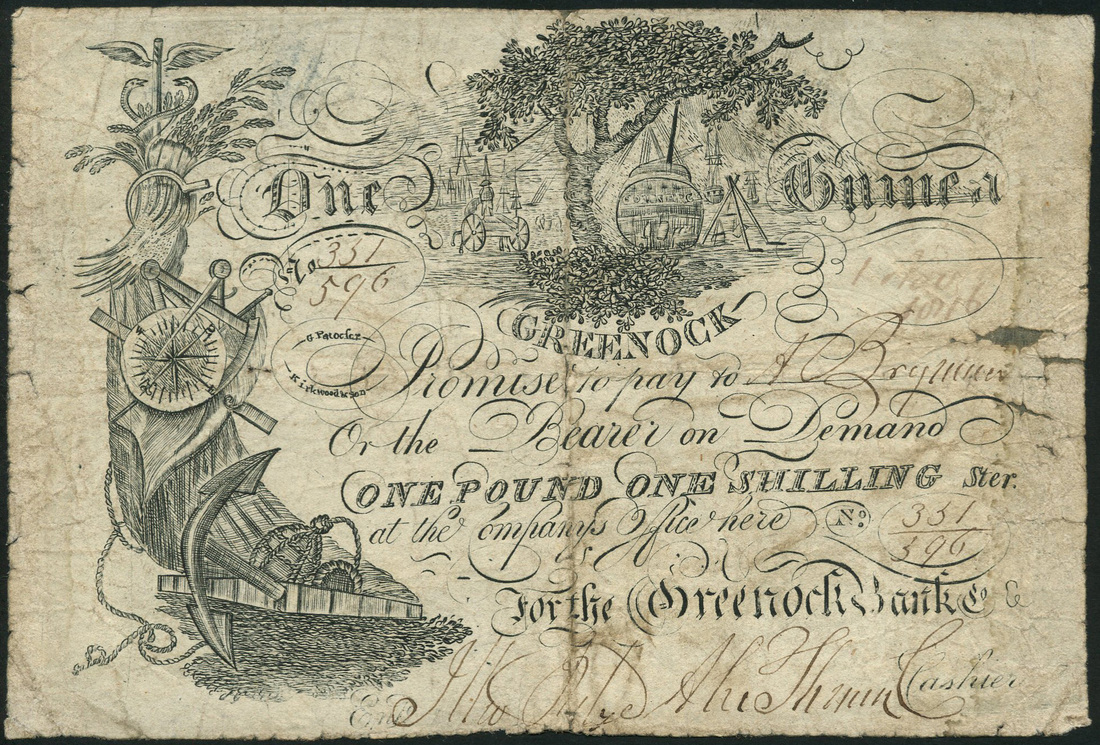 One Guinea
No 331
596
GREENOCK
Kirkwood & Son
Promise to pay to A
Or the Bearer on Demand
ONE POUND ONE SHILLING Ster.
at the Company's Office here No. 331
596
For the Greenock Bank Co.
Cashier